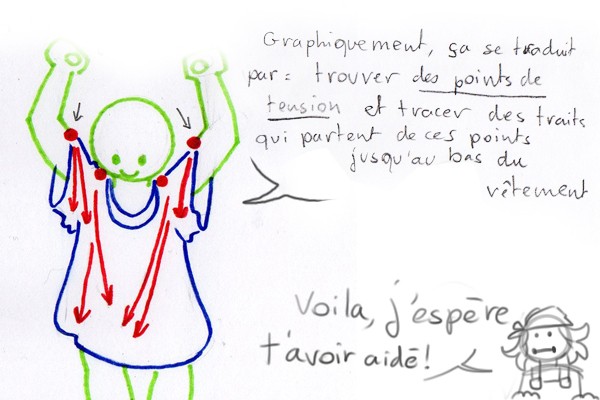 Graphiquement, ça se traduit
par: trouver des points de
tension et tracer des traits
qui partent de ces points
jusqu'au bas du
vêtement
Voila, j'espère
t'avoir aidé!